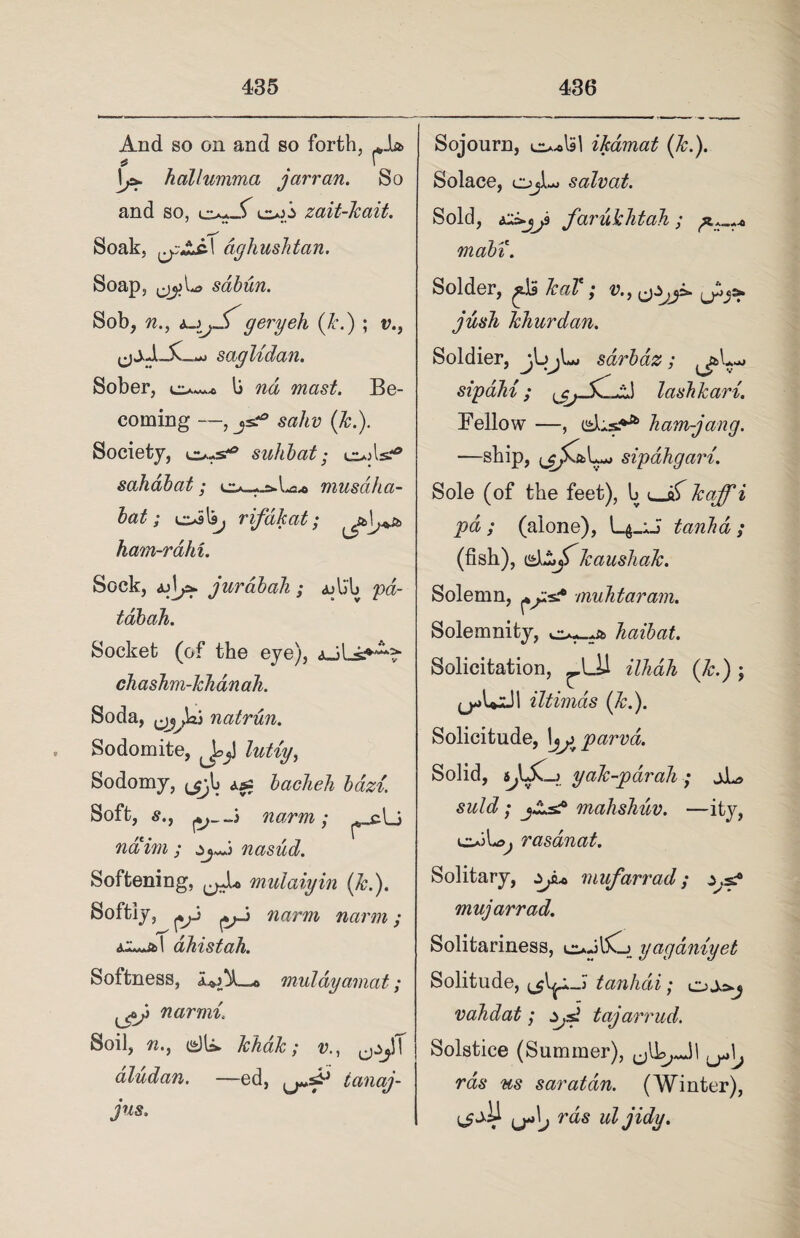 435
And so on and so forth, هلم
جرا hallumma jarran. So
and so, ذیت کیت zait-kait.
Soak, آغشتن ághushtan.
Soap, صابون sábún.
Sob, n., گریه geryeh (k.) ; v.,
سگلیدن saglídan.
Sober, نا مست ná mast. Be-
coming —, صحو sahv (k.).
Society, صحبت suhbat; صحابت
sahábat ; مصاحبت musáha-
bat ; رفاقت rifákat ; همراهی
ham-ráhí.
Sock, جرابه jurábah ; پاتابه pá-
tábah.
Socket (of the eye), چشمخانه
chashm-khánah.
Soda, نطرون natrún.
Sodomite, لوطی lutíy,
Sodomy, بچه بازی bacheh bází.
Soft, s., نرم narm ; ناعم
náʿim ; نسود nasúd.
Softening, ملین mulaiyin (k.).
Softly, نرم نرم narm narm ;
آهسته áhistah.
Softness, ملایمة muláyamat ;
نرمی narmí.
Soil, n., خاک khák ; v., آلودن
álúdan. —ed, تنجس tanaj-
jus.
436
Sojourn, اقامت ikámat (k.).
Solace, سلوت salvat.
Sold, فروخته farúkhtah ; مبیع
mabíʿ.
Solder, قلع kalʿ ; v., جوش خوردن
júsh khurdan.
Soldier, سارباز sárbáz ; سپاهی
sipáhí ; لشکری lashkarí.
Fellow —, همجنگ ham-jang.
—ship, سپاهگری sipáhgarí.
Sole (of the feet), کف پا kaff i
pá ; (alone), تنها tanhá ;
(fish), کوشک kaushak.
Solemn, محترم muhtaram.
Solemnity, هیبت haibat.
Solicitation, الحاح ilháh (k.) ;
التماس iltimás (k.).
Solicitude, پروا parvá.
Solid, یکپاره yak-párah ; صلد
suld ; محشو mahshúv. —ity,
رصانت rasánat.
Solitary, مفرد mufarrad ; مجرد
mujarrad.
Solitariness, یگانیت yagániyet
Solitude, تنهائی tanhái ; وحدت
vahdat ; تجرد tajarrud.
Solstice (Summer), راس السرطان
rás us saratán. (Winter),
راس الجدی rás ul jidy.